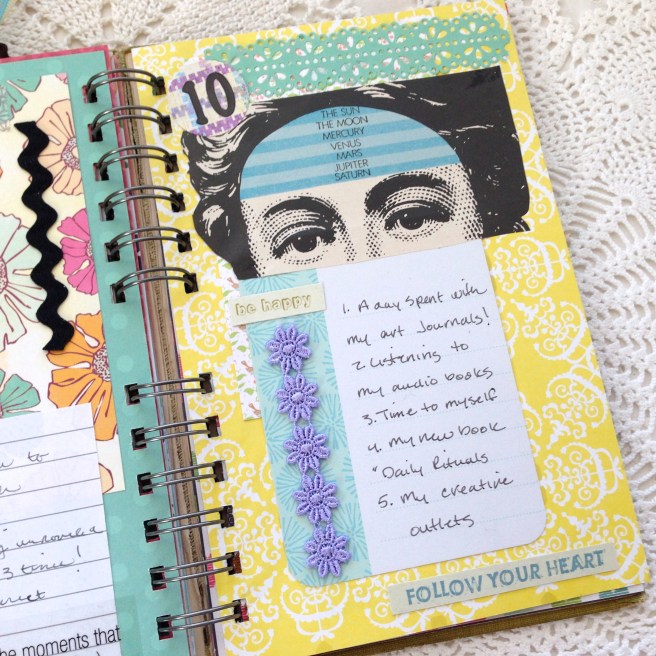 10
THE SUN
THE MOON
MERCURY
VENUS
MARS
JUPITER
SATURN
be happy
1. A day spent with
my art Journals!
2. Listening to
my audio books
3. Time to myself
4. My new book
"Daily Rituals
5. My creative
outlets
FOLLOW YOUR HEART
to
3 time!
he moments that